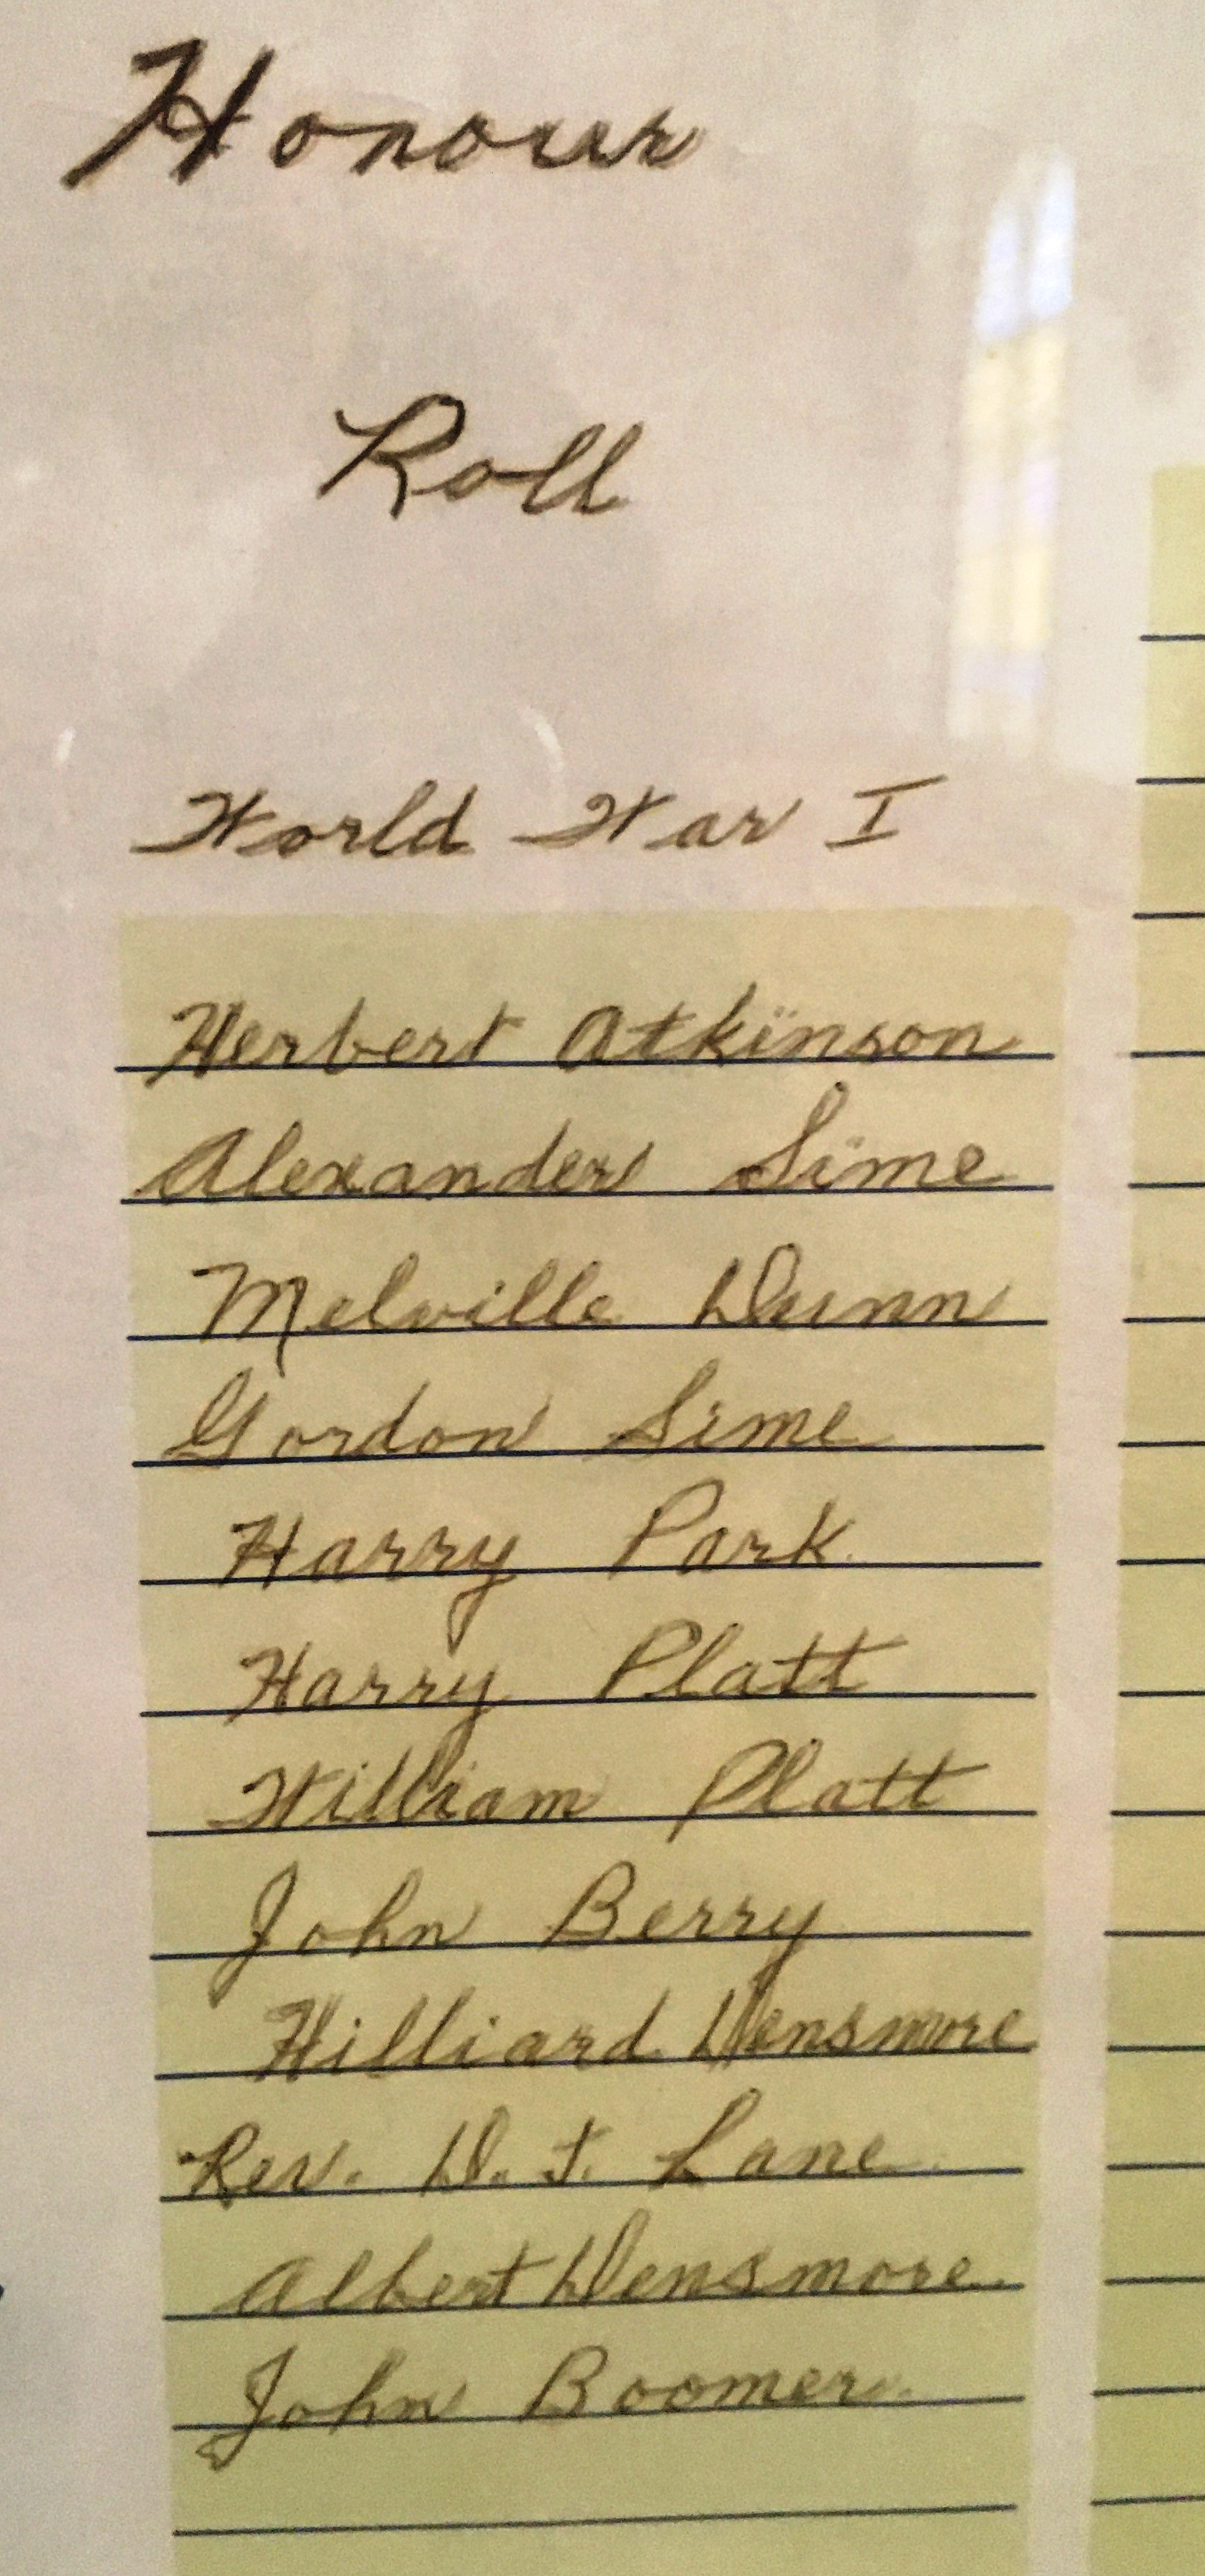 Honour
Roll
World War I
Herbert Atkinson
Alexander Sime
Melville Dunn
Gordon Sime
Harry Park
Harry Platt
William Platt
John Berry
Hilliard Densmore
Rev. D. J. Lane
Albert Densmore
John Boomer